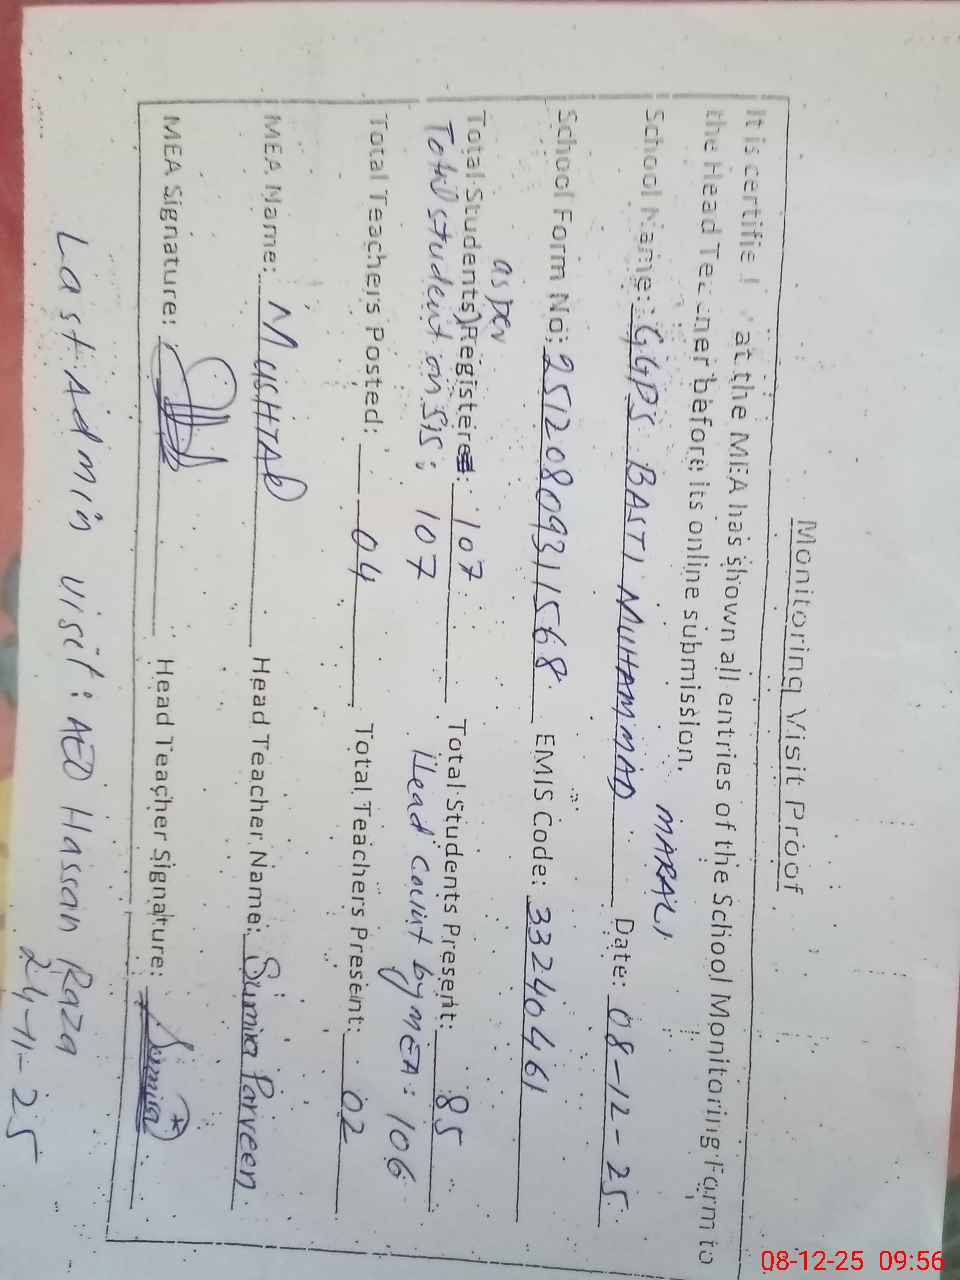 Monitoring Visit Proof
It is certified that the MEA has shown all entries of the School Monitoring Form to
the Head Teacher before its online submission.
MARALI
School Name: GGPS BASTI MUHAMMAD Date: 08-12-25
School Form No: 251208093 1568 EMIS Code: 33240461
as per
Total Students Registere: 107 Total Students Present: 85
Total student on SIS: 107 Head Count by MEA: 106
Total Teachers Posted: 04 Total Teachers Present: 02
MEA Name: MUSHTAQ Head Teacher Name: Sumia Parveen
MEA Signature: Head Teacher Signature: Sumia
Last Admin visit: AEO Hassan Raza
24-11-25
08-12-25 09:56